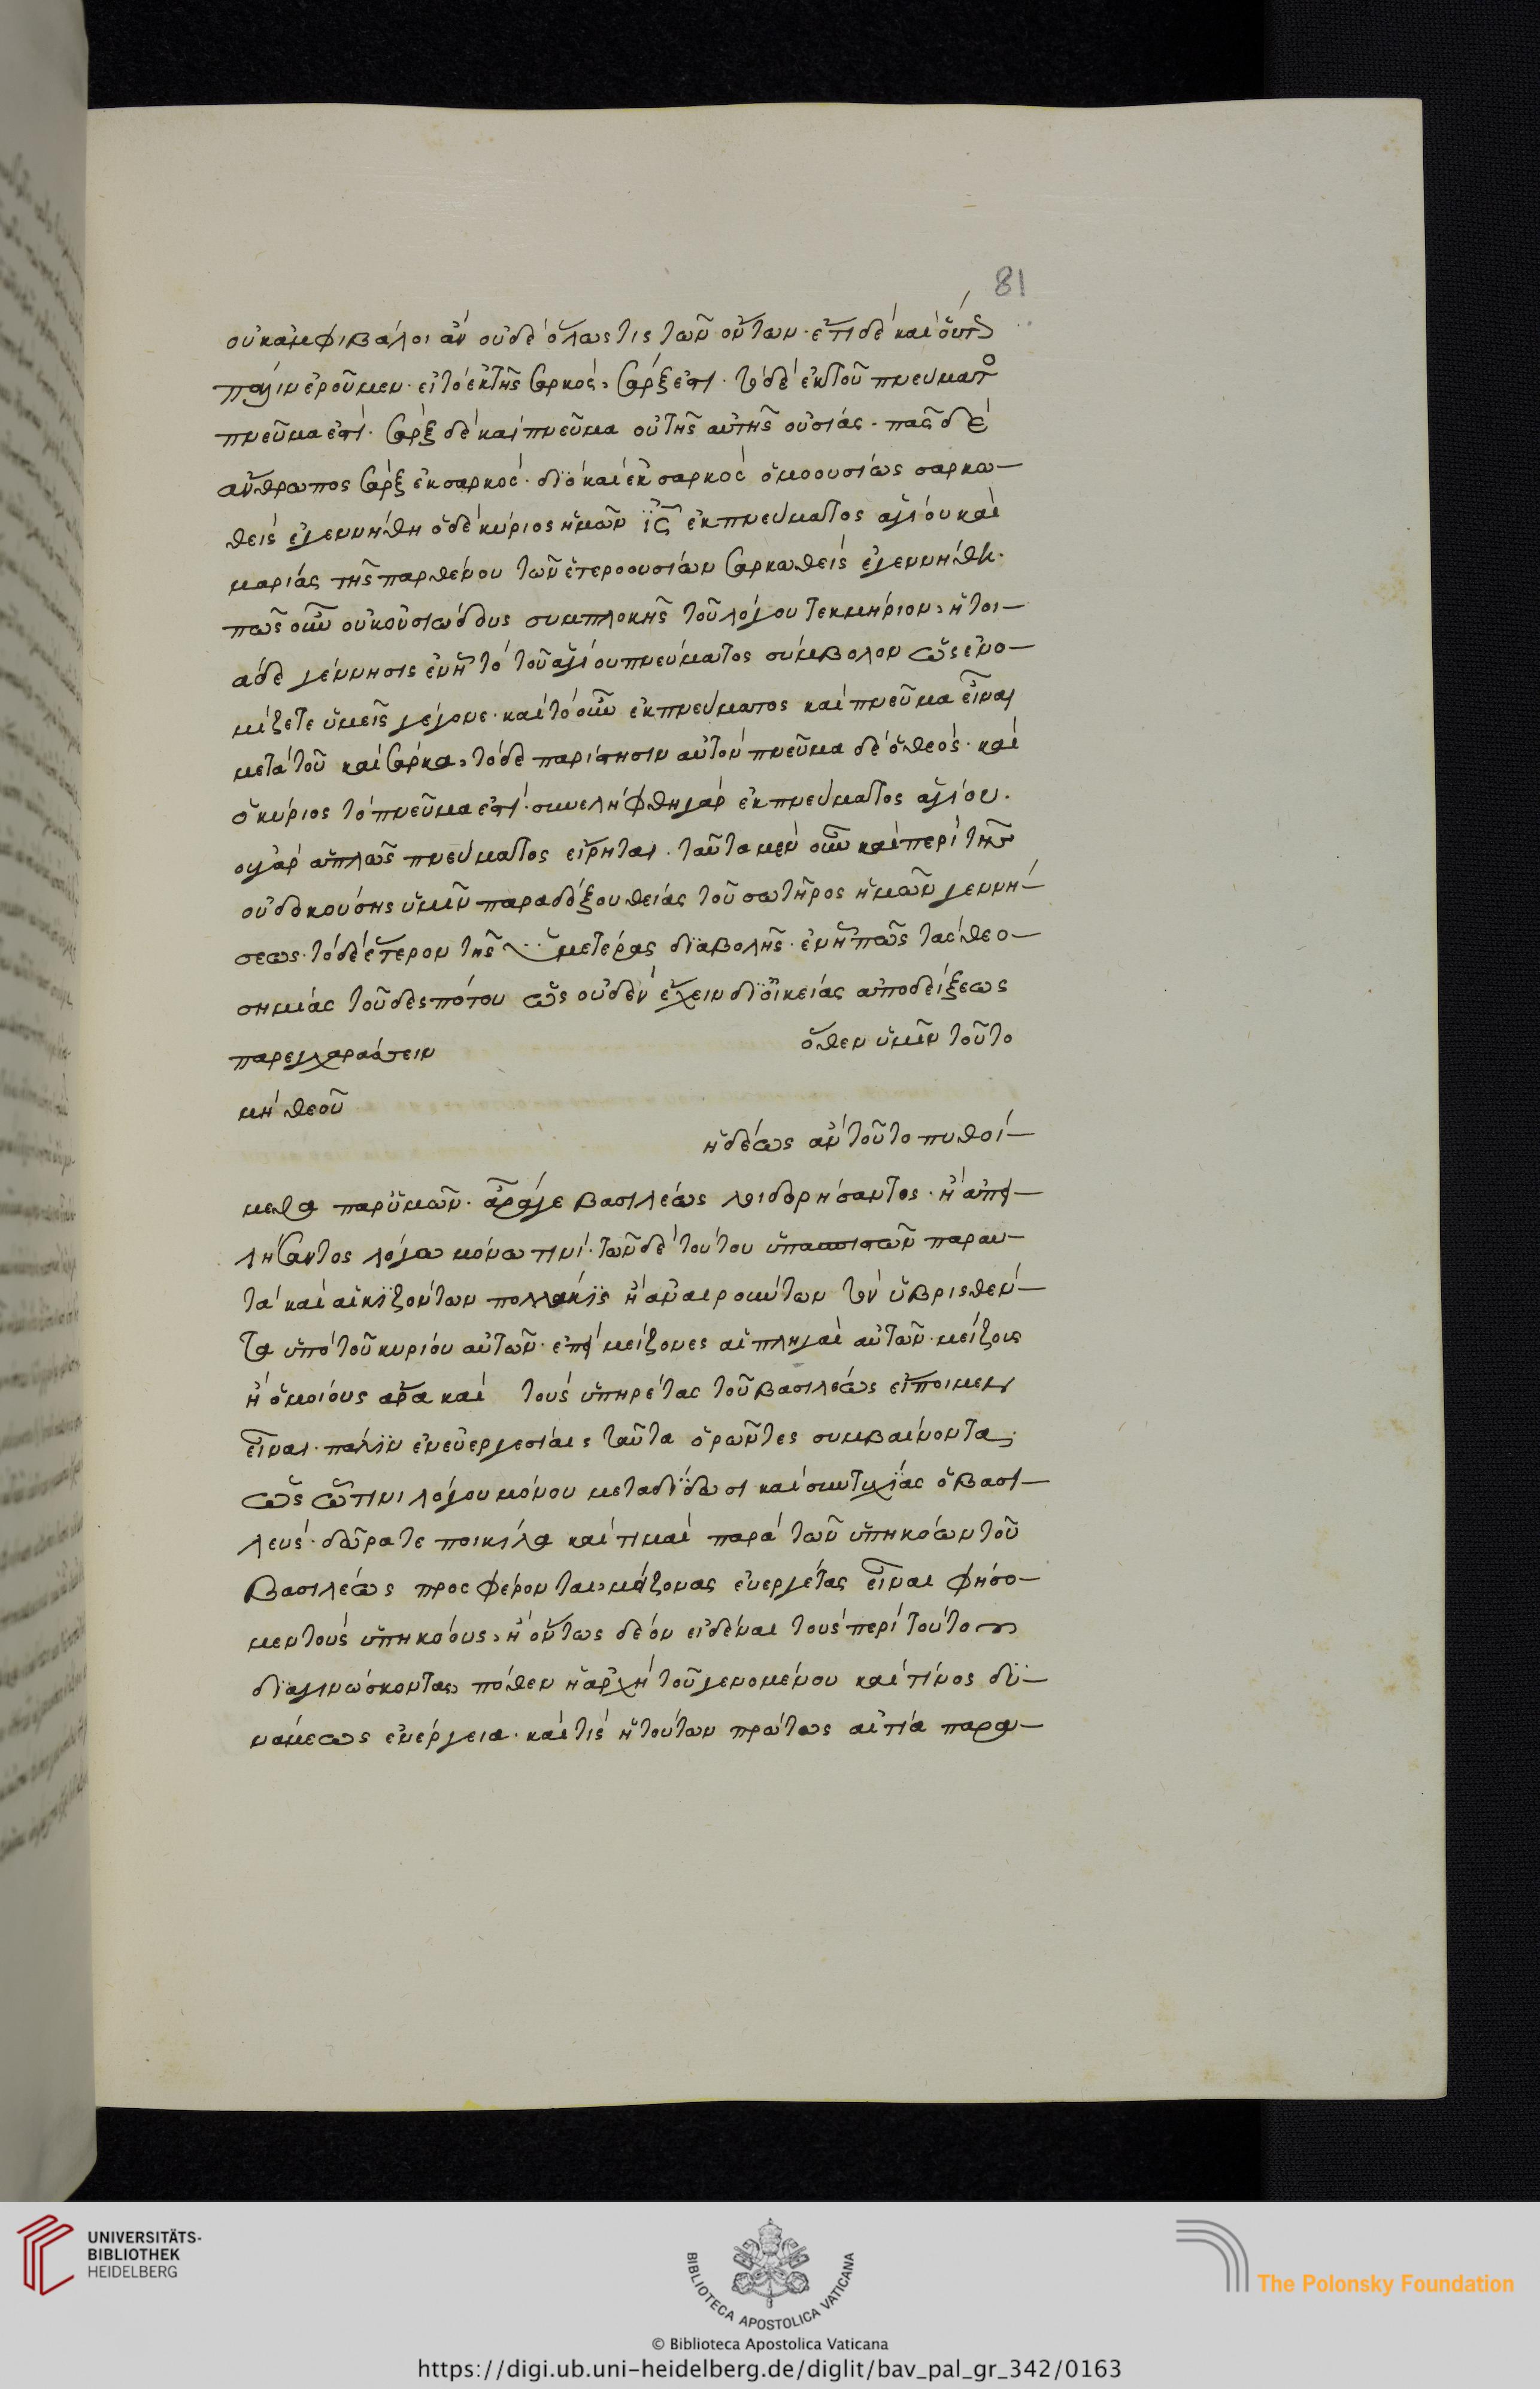 81
οὐκ ἀμφιβάλοι ἂν οὐδὲ ὅλως τὶς τῶν ὄντων· ἔτι δὲ καὶ οὕτως
πάλιν ἐροῦμεν· εἰ τὸ ἐκ τῆς σαρκός, σάρξ ἐστι· τὸ δὲ ἐκ τοῦ πνεύματος
πνεῦμα ἐστί· σάρξ δὲ καὶ πνεῦμα οὐ τῆς αὐτῆς οὐσίας· πᾶς δὲ
ἄνθρωπος σάρξ ἐκ σαρκός· διὸ καὶ ἐκ σαρκὸς ὁμοουσίως σαρκω–
θεὶς ἐγεννήθη ὁ δὲ κύριος ἡμῶν ἰς ἐκ πνεύματος ἁγίου καὶ
μαρίας τῆς παρθένου τῶν ἑτεροουσίων σαρκωθεὶς ἐγεννήθη·
πῶς οὖν οὐκ οὐσιώδους συμπλοκῆς τοῦ λόγου τεκμήριον, ἡ τοι–
άδε γέννησις ἐν ᾗ τὸ τοῦ ἁγίου πνεύματος σύμβολον ὡς ἐνο–
μίζετε ὑμεῖς γέγονε· καὶ τὸ οὖν ἐκ πνεύματος καὶ πνεῦμα εἶναι
μετὰ τοῦ καὶ σάρκα, τόδε παρίστησιν αὐτὸν πνεῦμα δὲ ὁ θεός· καὶ
ὁ κύριος τὸ πνεῦμα ἐστί· συνελήφθη γὰρ ἐκ πνεύματος ἁγίου·
οὐ γὰρ ἁπλῶς πνεύματος εἴρηται· ταῦτα μὲν οὖν καὶ περὶ τῆς
οὐ δοκούσης ὑμῖν παραδόξου θείας τοῦ σωτῆρος ἡμῶν γεννή–
σεως· τὸ δὲ ἕτερον τῆς ὑμετέρας διαβολῆς· ἐν ᾗ πῶς τὰς θεο–
σημίας τοῦ δεσπότου ὡς οὐδὲν ἔχειν δι οἰκείας ἀποδείξεως
παρεγχαράττειν ὅθεν ὑμῖν τοῦτο
μὴ θεοῦ
ἡδέως ἂν τοῦτο πυθοί–
μεθα παρ ὑμῶν· ἆρά γε βασιλέως λοιδορήσαντος· ἢ ἀπει–
λήσαντος λόγω μόνω τινί· τῶν δὲ τούτου ὑπασπιστῶν παραυ–
τὰ καὶ αἰκιζόντων πολλάκις ἢ ἀναιρούντων τὸν ὑβρισθέν–
τα ὑπὸ τοῦ κυρίου αὐτῶν· ἐπεὶ μείζονες αἱ πληγαὶ αὐτῶν· μείζους
ἢ ὁμοίους ἄρα καὶ τοὺς ὑπηρέτας τοῦ βασιλέως εἴποιμεν
εἶναι· πάλιν ἐν εὐεργεσίαις ταῦτα ὁρῶντες συμβαίνοντα·
ὡς ὧτινι λόγου μόνου μεταδίδωσι καὶ συντυχίας ὁ βασι–
λεύς· δῶρά τε ποικίλα καὶ τιμαὶ παρὰ τῶν ὑπηκόων τοῦ
βασιλέως προσφέρονται, μείζονας εὐεργέτας εἶναι φήσο–
μεν τοὺς ὑπηκόους, ἢ ὄντως δέον εἰδέναι τοὺς περὶ τούτου
διαγινώσκοντας, πόθεν ἡ ἀρχὴ τοῦ γενομένου καὶ τίνος δυ–
νάμεως ἐνέργεια· καὶ τὶς ἡ τούτων πρώτως αἰτία παρα–
UNIVERSITÄTS-
BIBLIOTHEK
HEIDELBERG
BIBLIOTECA APOSTOLICA VATICANA
The Polonsky Foundation
© Biblioteca Apostolica Vaticana
https://digi.ub.uni-heidelberg.de/diglit/bav_pal_gr_342/0163